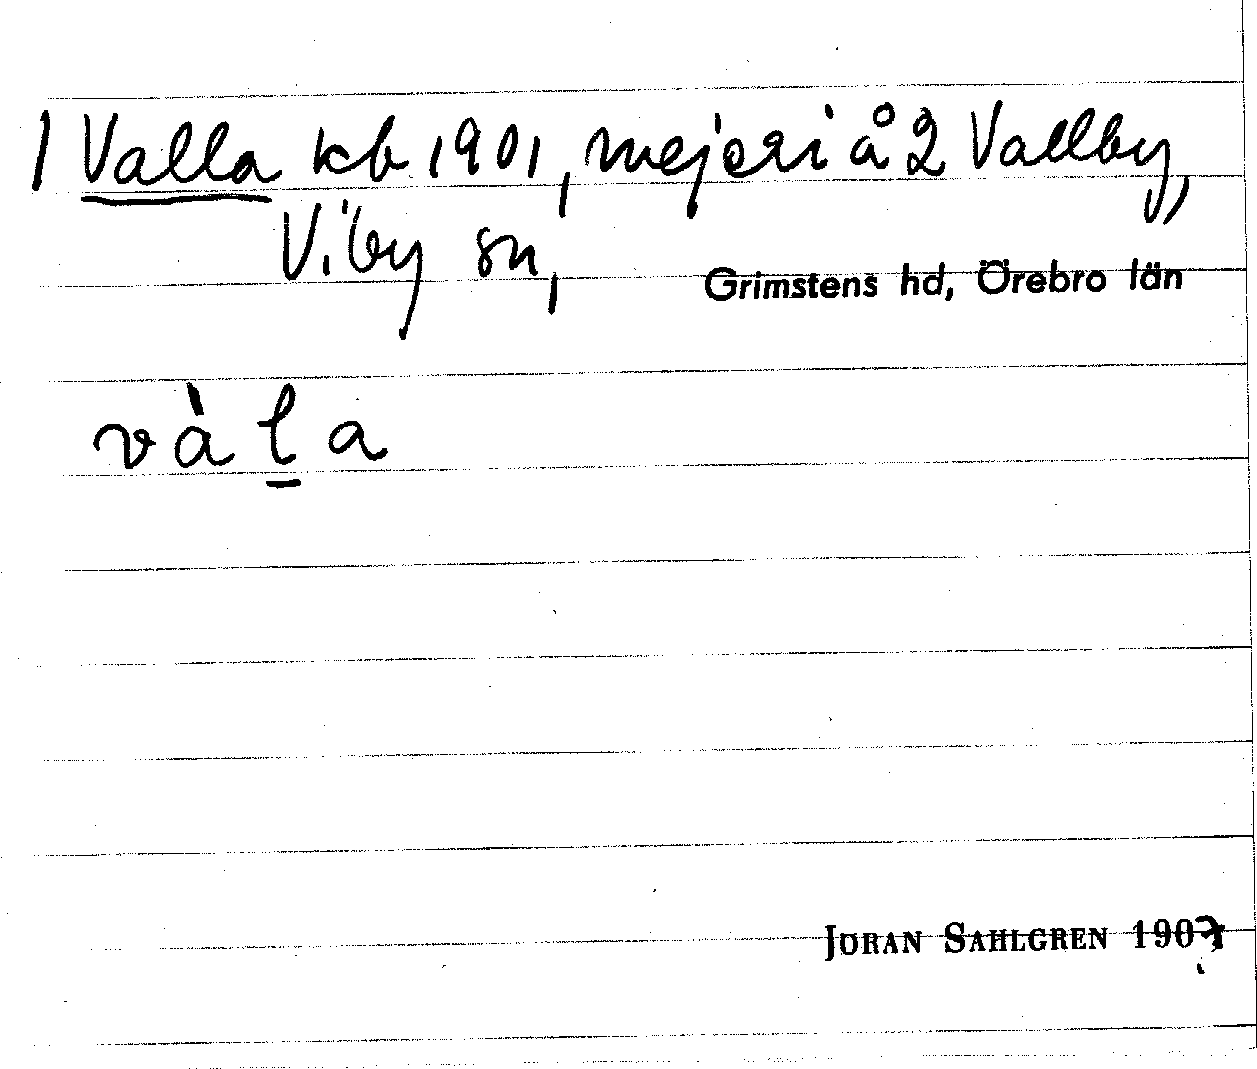 1 Valla kb 1901, mejeri å 2 Vallby,
Viby sn,
Grimstens hd, Örebro län
vàl̲a
JÖRAN SAHLGREN 1907